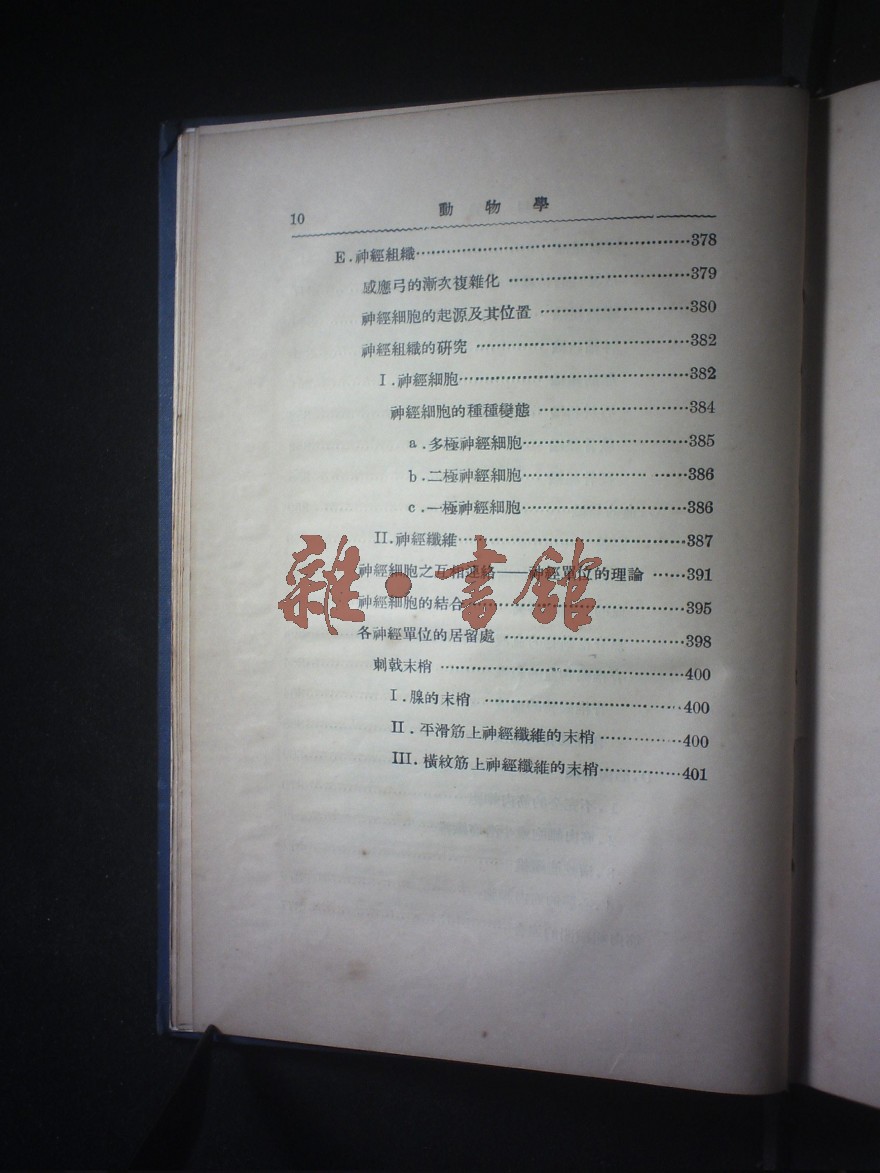 10 動物學
E.神經組織……378
感應弓的漸次複雜化……379
神經細胞的起源及其位置……380
神經組織的研究……382
I.神經細胞……382
神經細胞的種種變態……384
a.多極神經細胞……385
b.二極神經細胞……386
c.一極神經細胞……386
II.神經纖維……387
神經細胞之互相連絡——神經單位的理論……391
神經細胞的結合……395
各神經單位的居留處……398
刺戟末梢……400
I.腺的末梢……400
II.平滑筋上神經纖維的末梢……400
III.橫紋筋上神經纖維的末梢……401
雜•書館